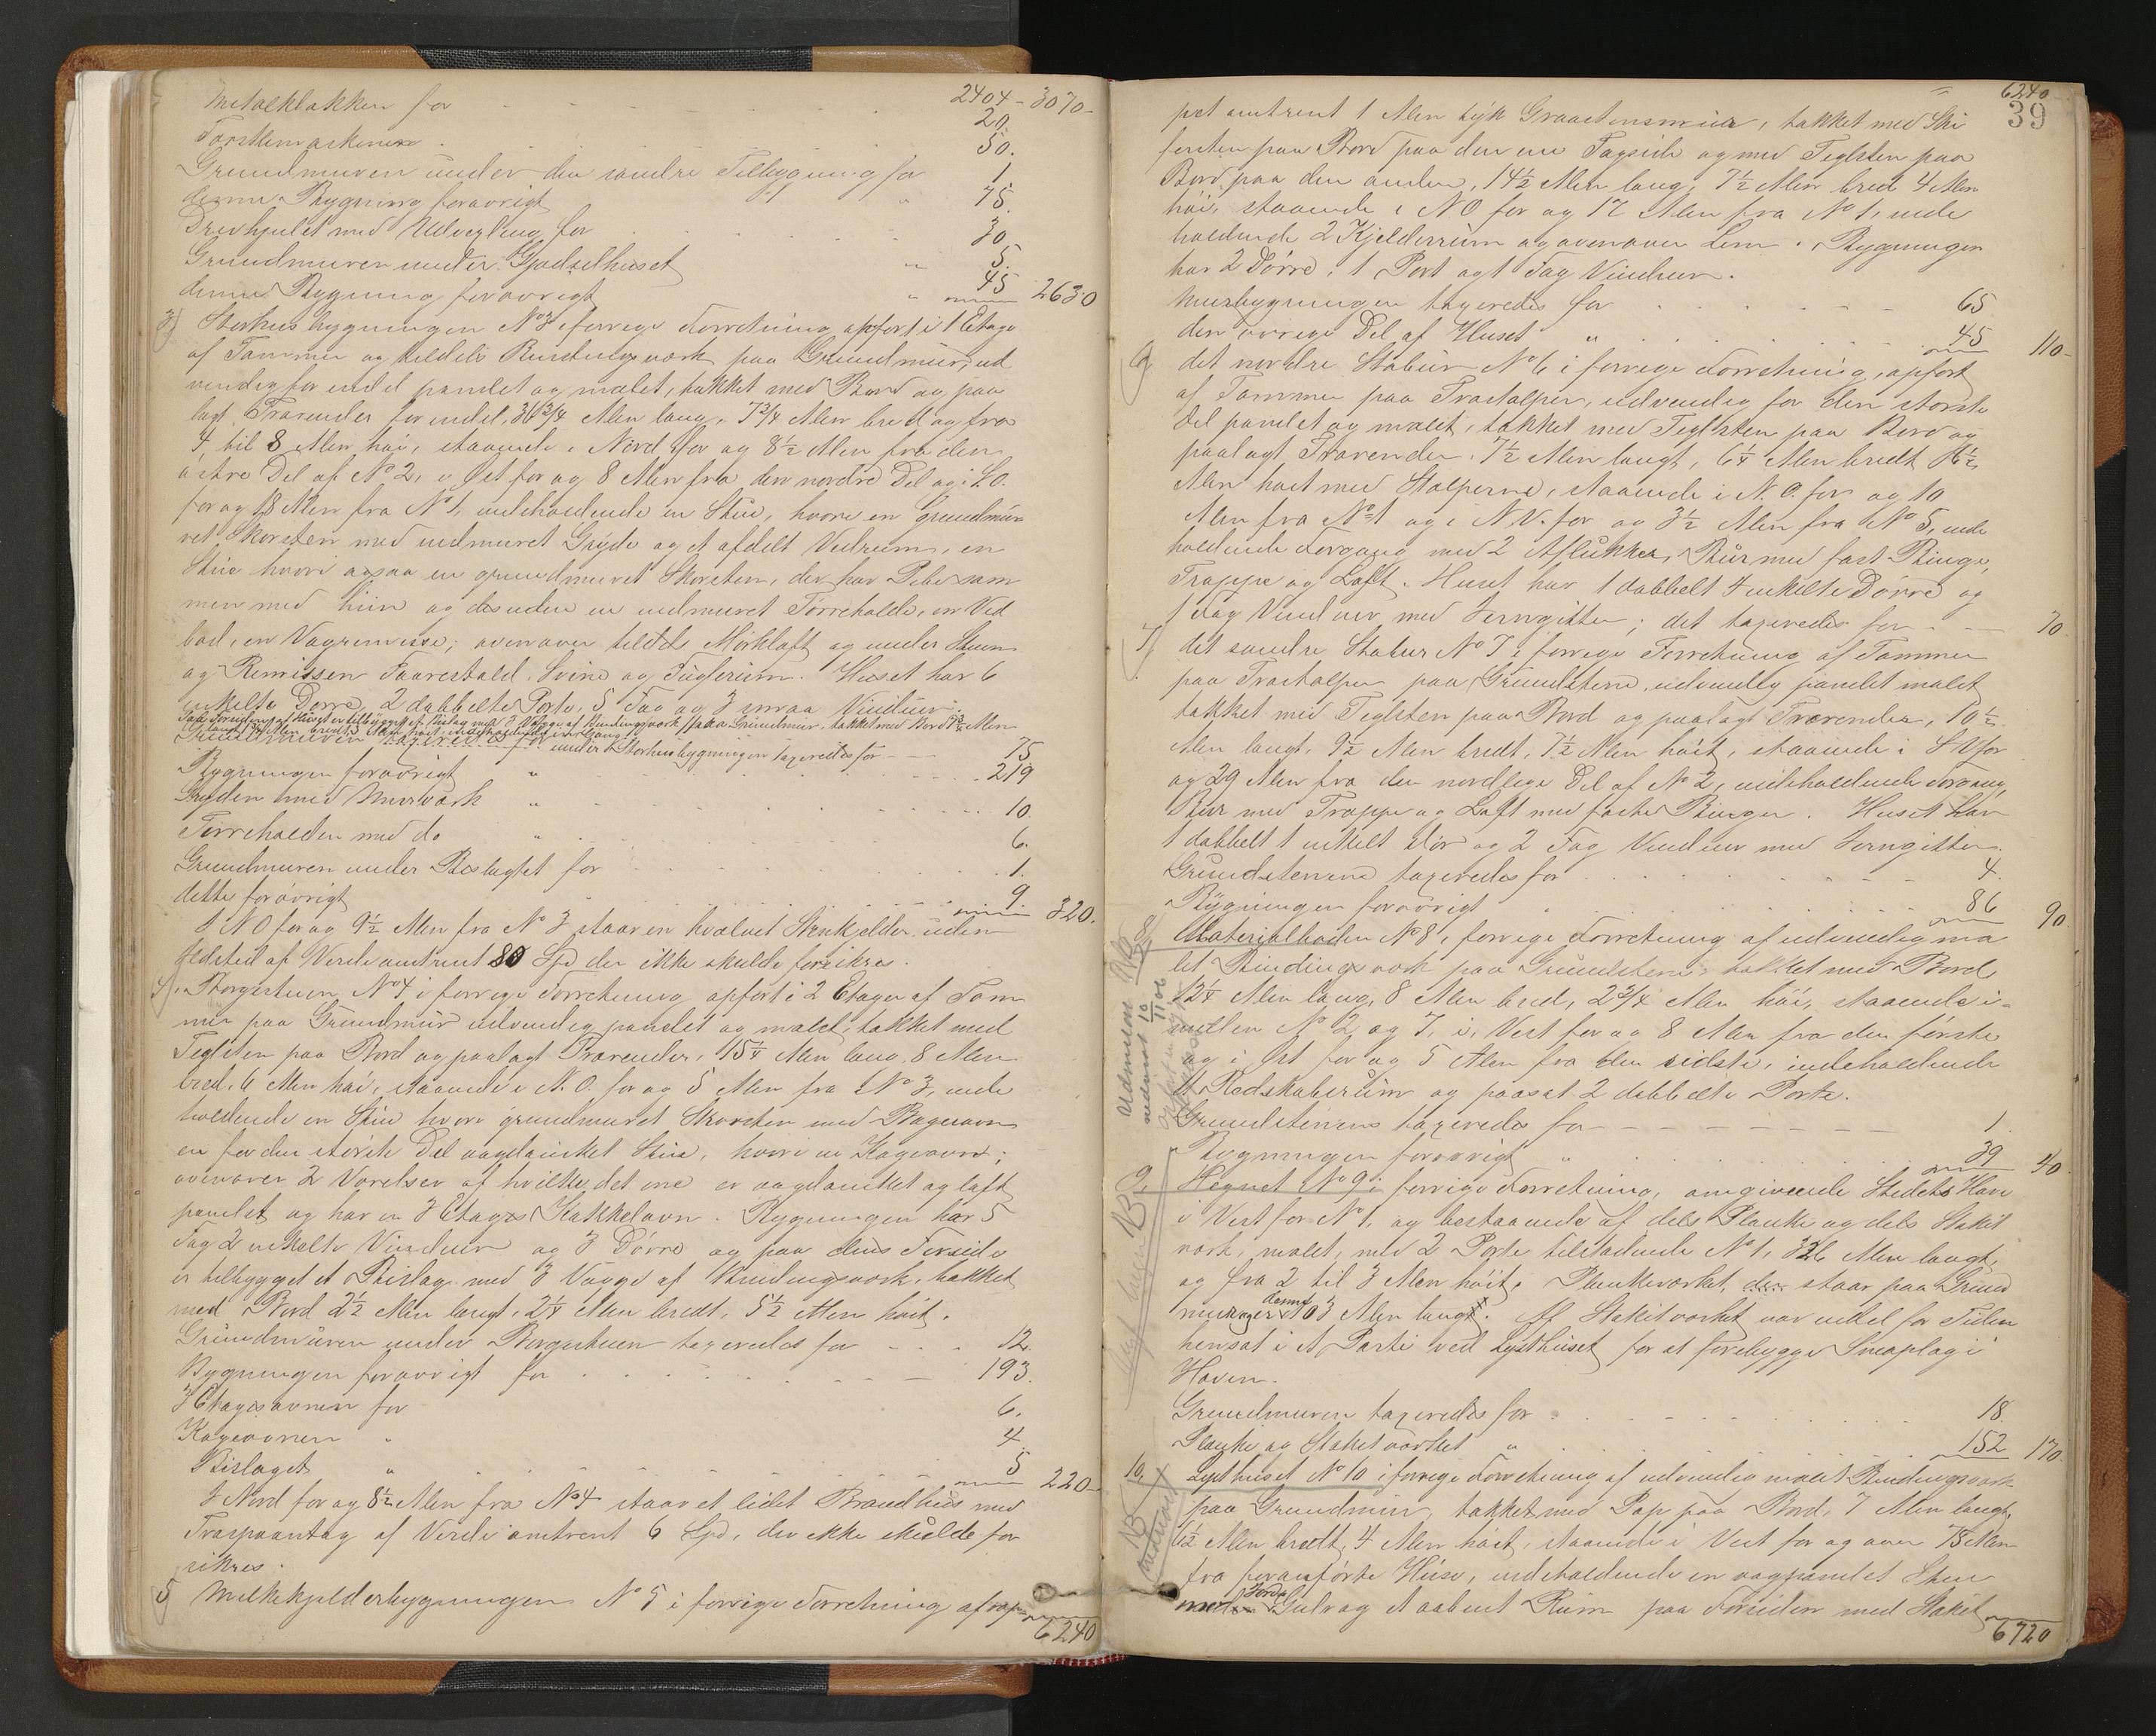 Metalklokken for 2404 - 3070 -
20
Tærskemaskinen 50.
Grundmuren under den søndre Tilbygning for 1.
denne Bygning forøvrigt " 75.
Drivhjulet med Udvexling for 30.
Grundmuren under Gjødselhuset " 5.
denne Bygning forøvrigt " 45 2630
3) Storhusbygningen No 3 i forrige Forretning opført i 1 Etage
af Tømmer og tildels Bindingsværk paa Grundmur, ud
vendig for endel panelet og malet, takket med Bord og paa
lagt Trærender for endel, 36 3/4 Alen lang, 7 3/4 Alen bred og fra
4 til 8 Alen høi, staaende i Nord for og 8 1/2 Alen fra den
østre Del af No 2, i Øst for og 8 Alen fra den nordre Del og i S.O.
for og 18 Alen fra No 1, indeholdende en Stue, hvori en grundmu
ret Skorsten med indmuret Gryde og et afdelt Vedrum, en
Stue hvori ogsaa en grundmuret Skorsten, der har Pibe sam
men med hiin og desuden en indmuret Tørrehelde, en Ved
bod, en Vognremisse; ovenover tildels Mørkloft og under Stuen
og Remissen Faarestald, Svine og Fuglerum. Huset har 6
enkelte Dørre, 2 dobbelte Porte, 5 Fag og 3 smaa Vinduer.
Paa Forsiden af Huset er tilbygget et Bislag med 3 Vægge af Bindingsværk paa Grundmur, takket med Bord 7 1/2 Alen
under Storhusbygningen taxeredes for 75
Bygningen forøvrigt " 219
Gryden med Murværk " 10.
Tørrehelden med do " 6.
Grundmuren under Bislaget for 1.
dette forøvrigt 9. 320.
I NO for og 9 1/2 Alen fra No 3 staar en hvælvet Stenkjelder uden
Ildsted af Verdi omtrent 80 Spd der ikke skulde forsikres.
4) Borgestuen No 4 i forrige Forretning opført i 2 Etager af Tøm
mer paa Grundmur udvendig panelet og malet, takket med
Teglsten paa Bord og paalagt Trærender, 15 1/4 Alen lang, 8 Alen
bred, 6 Alen høi, staaende i N.O. for og 5 Alen fra No 3, inde
holdende en Stue hvori grundmuret Skorsten med Bagerovn
en for den største Del aapdanket Stue, hvori en Kogeovn;
ovenover 2 Værelser af hvilke det ene er og loft
panelet og har en 3 Etages Kakkelovn. Bygningen har 5
Fag 2 enkelte Vinduer og 3 Dørre og paa dens Forside
er tilbygget et Bislag med 3 Vægge af Bindingsværk, takket
med Bord 2 1/2 Alen langt, 2 1/4 Alen bredt, 5 1/2 Alen høit.
Grundmuren under Borgestuen taxeredes for 12.
Bygningen forøvrigt for 193.
3 Etagesovnen for 6.
Kogeovnen " 4.
Bislaget " 5 220 -
I Nord for og 8 1/2 Alen fra No 4 staar et lidet Brændhus med
Træspaantag af Verdi omtrent 6 Spd, der ikke skulde for
sikres.
5 Melkekjelderbygningen No 5 i forrige Forretning af
6240
6240
39
pet omtrent 1 Alen tyk Graastensmur, takket med Ski
fersten paa Bord paa den ene Tagside og med Teglsten paa
Bord paa den anden, 14 1/2 Alen lang, 7 1/2 Alen bred 4 Alen
høi, staaende i NO for og 17 Alen fra No 1, inde
holdende 2 Kjelderrum og ovenover Lem. Bygningen
har 2 Dørre, 1 Port og 1 Fag Vinduer.
Murbygningen taxeredes for 65
den øvrige Del af Huset " 45 110 -
6) det nordre Stabur No 6 i forrige Forretning, opført
af Tømmer paa Træstolper, udvendig for den største
Del panelet og malet, takket med Teglsten paa Bord og
paalagt Trærender, 7 1/2 Alen langt, 6 1/4 Alen bredt 6 1/2
Alen høit med Stolperne, staaende i N.O. for og 10
Alen fra No 1 og i N.V. for og 3 1/2 Alen fra No 5, inde
holdende Forgang med 2 Aflukker, Bur med fast Binge,
Trappe og Loft. Huset har 1 dobbelt 4 enkelte Dørre og
1 Fag Vinduer med Jerngitter; det taxeredes for 70
7) det søndre Stabur No 7 i forrige Forretning af Tømmer
paa Træstolper paa Grundstene, udvendig panelet malet
takket med Teglsten paa Bord og paalagt Trærender, 10 1/2
Alen langt, 9 1/2 Alen bredt, 7 1/2 Alen høit, staaende i SV for
og 29 Alen fra den nordlige Del af No 2, indeholdende Forgang,
Bur med Trappe og Loft med faste Binger. Huset har
1 dobbelt 1 enkelt Dør og 2 Fag Vinduer med Jerngitter.
Grundstenene taxeredes for 4.
Bygningen forøvrigt " 86 90
No 8 Materialboden No 8 i forrige Forretning af udvendig ma
let Bindingsværk paa Grundstene, takket med Bord,
12 1/4 Alen lang, 8 Alen bred, 2 3/4 Alen høi, staaende i-
mellem No 2 og 7, i Vest for og 8 Alen fra den første
og i Øst for og 5 Alen fra den sidste, indeholdende
et Redskabsrum og paasat 2 dobbelte Porte.
Grundstenene taxeredes for 1.
Bygningen forøvrigt " 39 40
9. Hegnet No 9 i forrige Forretning, omgivende Stedets Have
i Vest for No 1, og bestaaende af dels Planke og dels Stakit
værk, malet, med 2 Porte tilstødende No 1, 326 Alen langt,
og fra 2 til 3 Alen høit. Plankeværket, staar paa Grund
mur denne 103 Alen lang. Af Stakitværket var endel for Tiden
hensat i et Parti ved Lysthuset for at forebygge Sneoplag i
Haven.
Grundmuren taxeredes for 18.
Planke og Stakitværket " 152 170.
10. Lysthuset No 10 i forrige Forretning af udvendig malet Bindingsværk
paa Grundmur, takket med Pap paa Bord, 7 Alen langt,
6 1/2 Alen bredt, 4 Alen høit, staaende i Vest for og over 75 Alen
fra foranførte Huse, indeholdende en aapanelet Stue
med Jord Gulv og et aabent Rum paa Forsiden med Stakit
6720